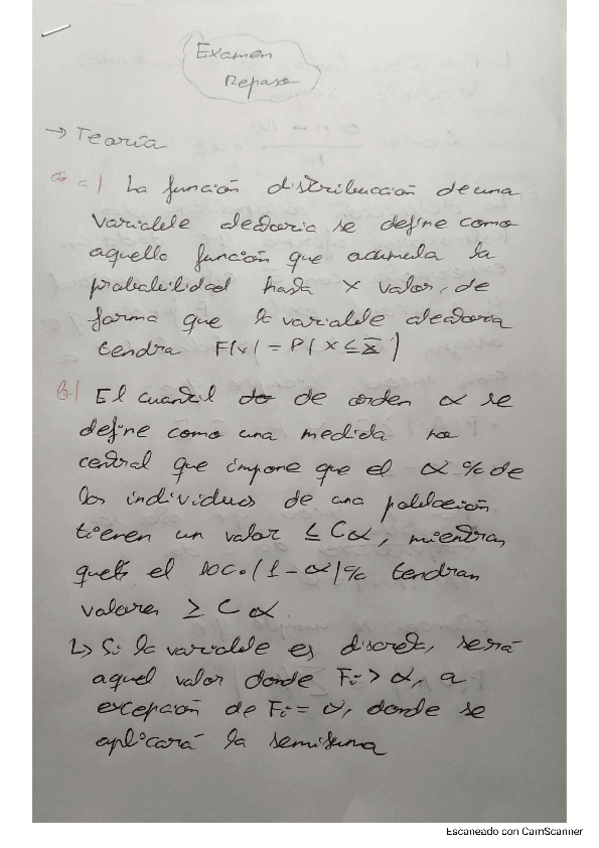 Examen
Repaso
→ Teoría
a) La función distribucción de una
variable aleatoria se define como
aquella función que acumula la
probabilidad hasta x valor, de
forma que la variable aleatoria
tendra F(x) = P(X ≤ x)
b) El cuantil de orden α se
define como una medida no
central que impone que el α % de
los individuos de una población
tienen un valor ≤ Cα, mientras
que el 100·(1-α)% tendran
valores ≥ Cα
↳ Si la variable es discreta, será
aquel valor donde Fi > α, a
excepción de Fi = α, donde se
aplicará la semisuma
Escaneado con CamScanner